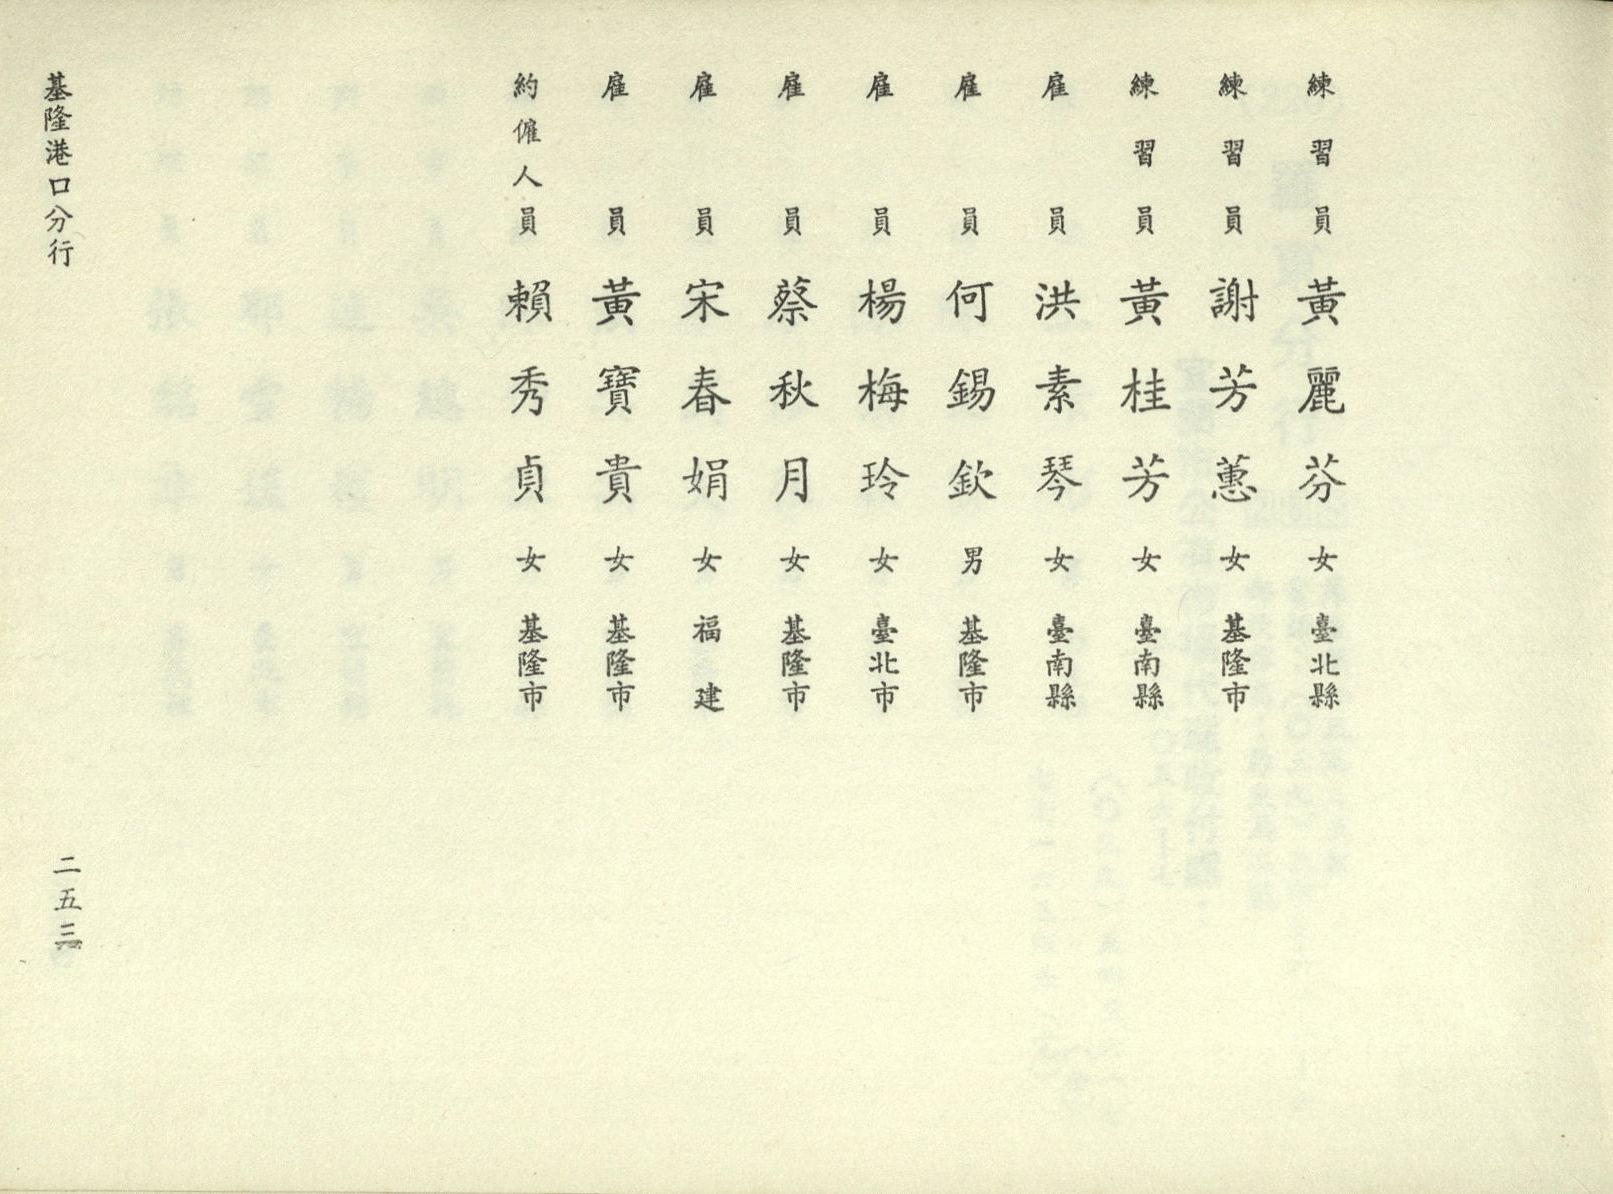 練習員 黃麗芬 女 臺北縣
練習員 謝芳蕙 女 基隆市
練習員 黃桂芳 女 臺南縣
雇員 洪素琴 女 臺南縣
雇員 何錫欽 男 基隆市
雇員 楊梅玲 女 臺北市
雇員 蔡秋月 女 基隆市
雇員 宋春娟 女 福建
雇員 黃寶貴 女 基隆市
約僱人員 賴秀貞 女 基隆市
基隆港口分行
二五三